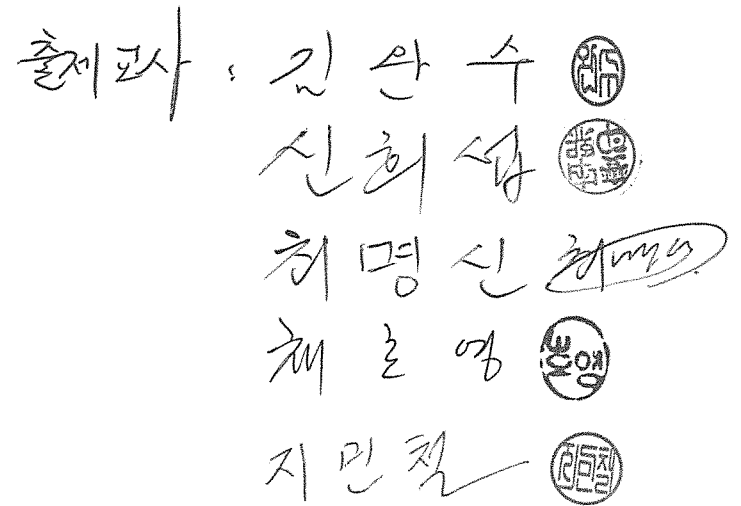 출제교사 : 김완수
신희섭
최명신
채호영
지민철